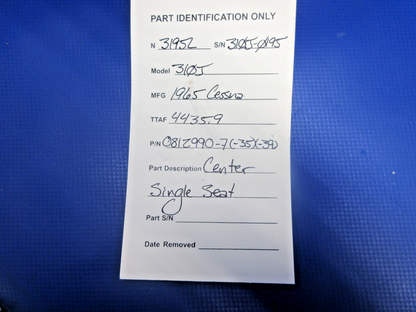 PART IDENTIFICATION ONLY
N 3195L S/N 310J-0195
Model 310J
MFG 1965 Cessna
TTAF 4435.9
P/N 0812990-7(-35)(-39)
Part Description Center
Single Seat
Part S/N
Date Removed